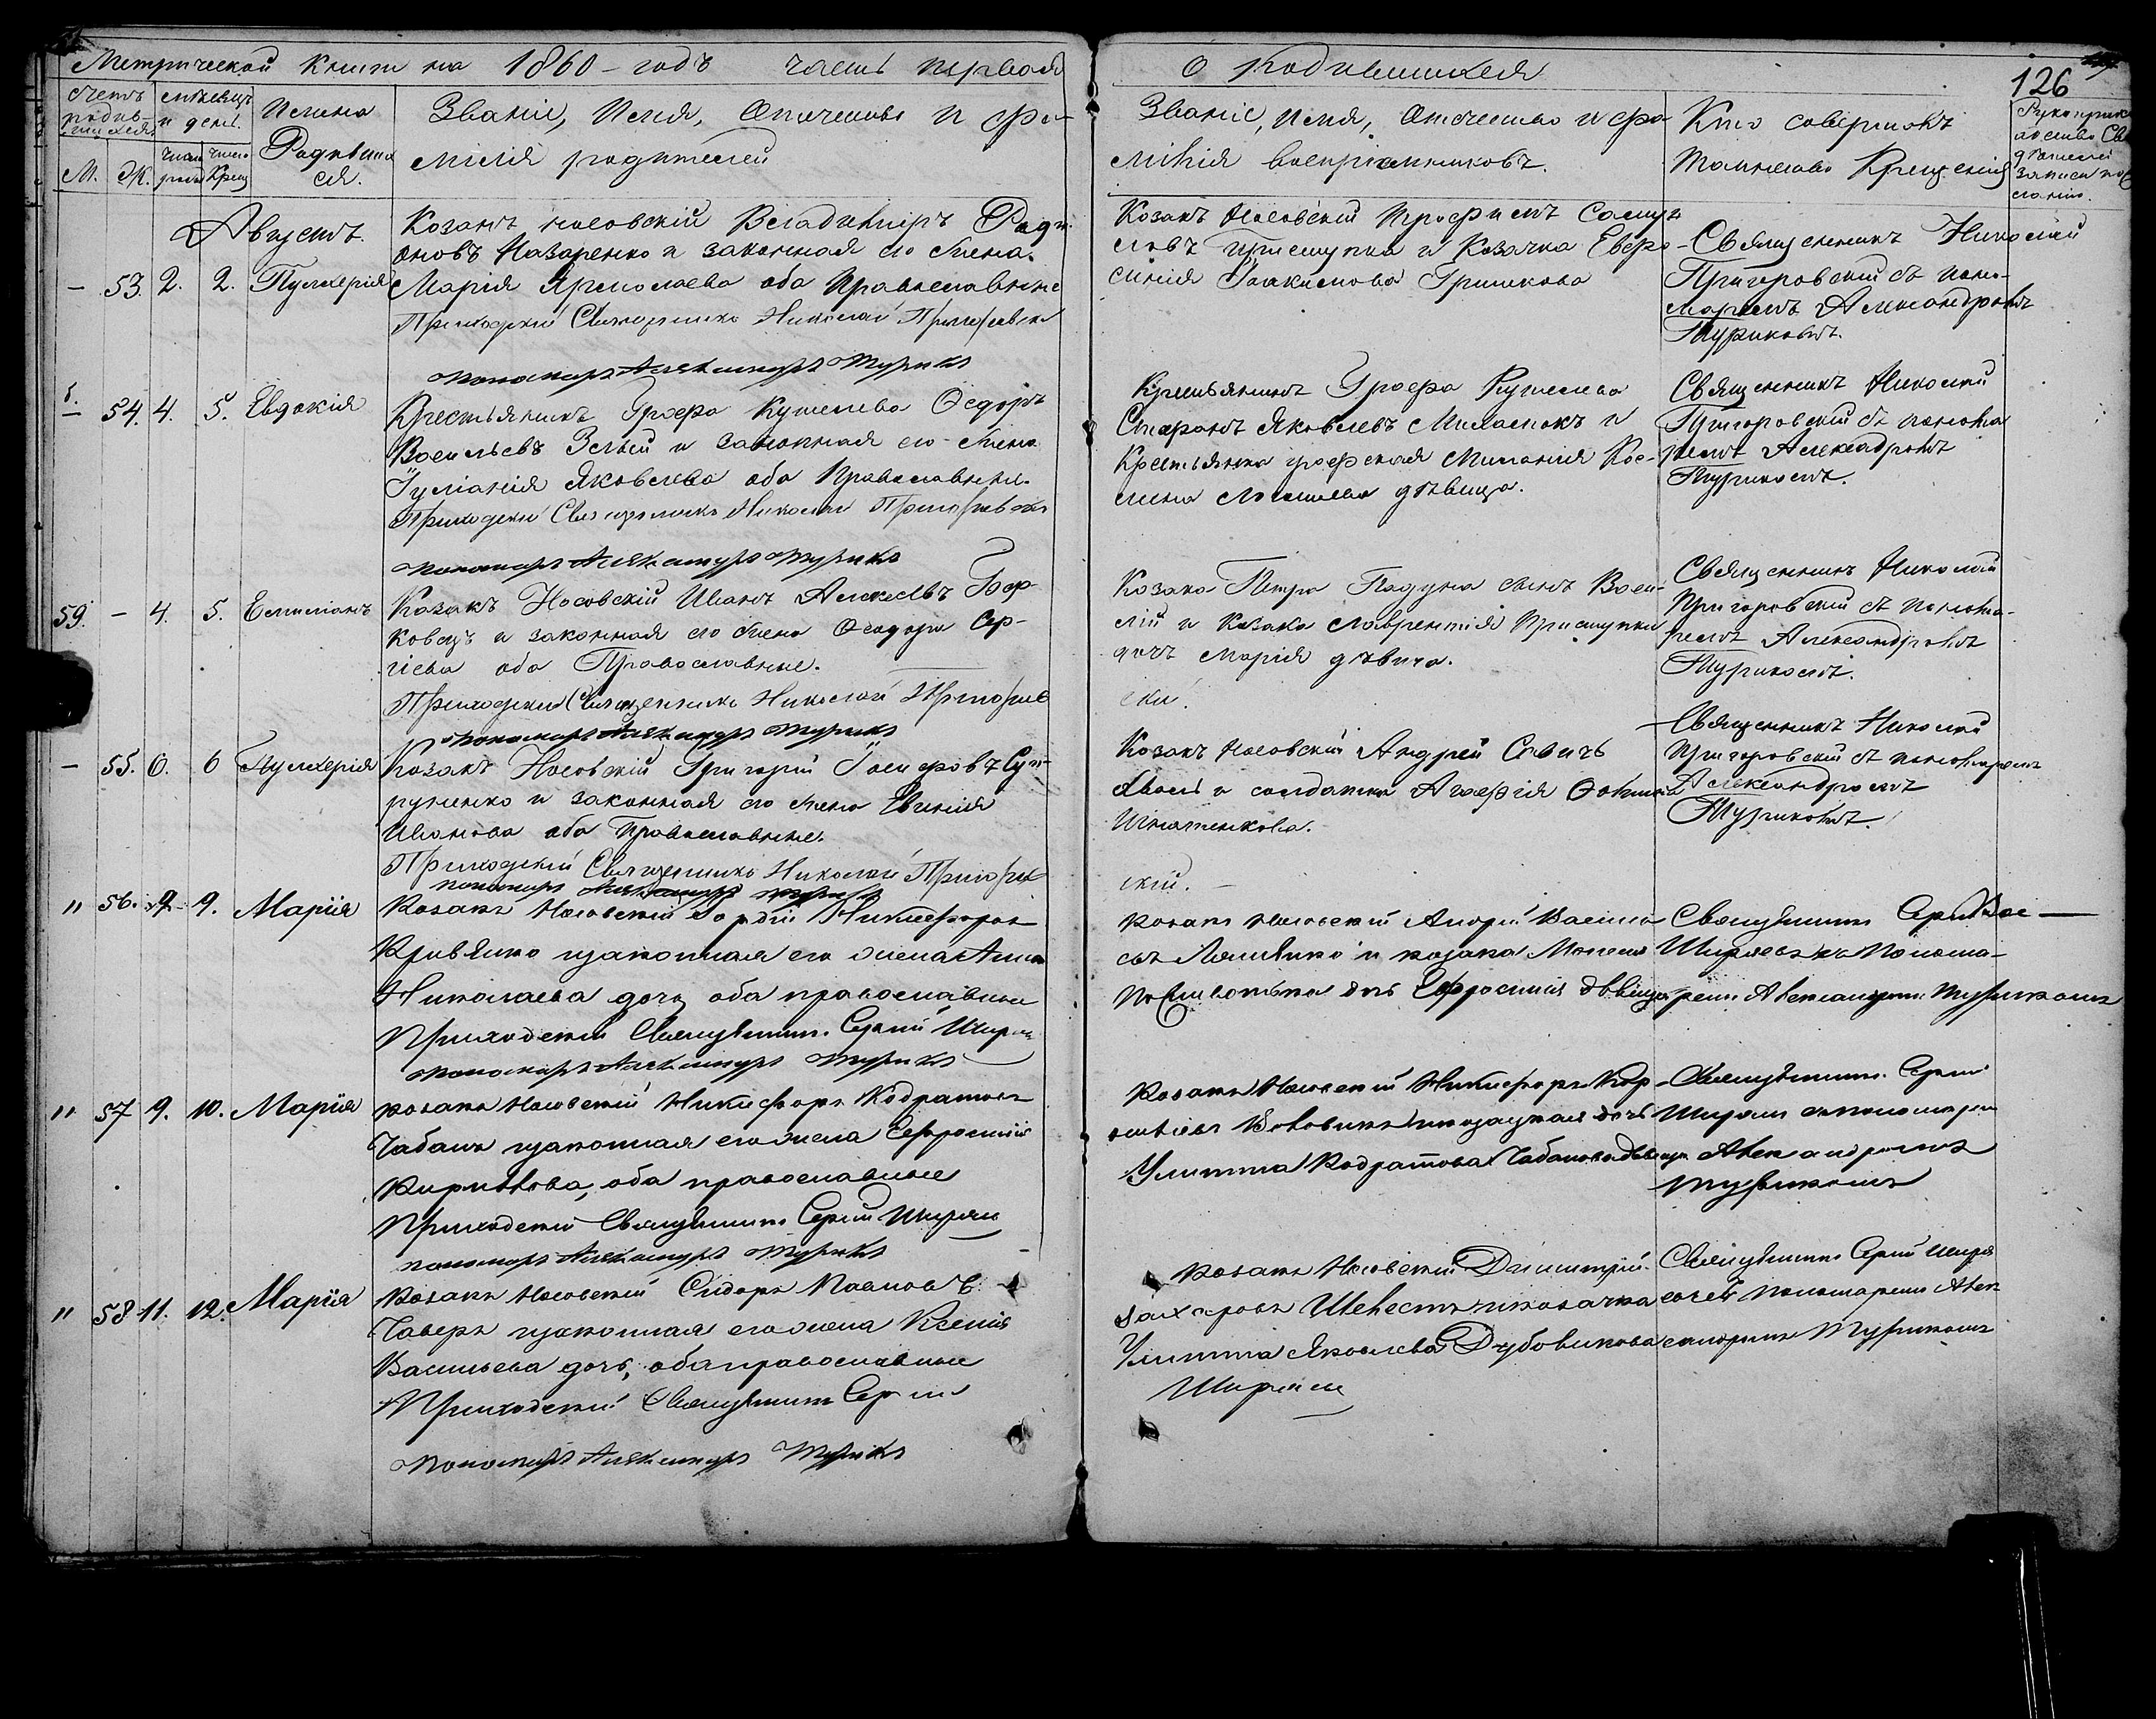 Метрической книги на 1860 - годъ часть первая
О Родившихся
126
счетъ родив-шихся
мѣсяцъ и день
Имена Родившихся.
Званіе, Имя, Отчество и фа-
милія родителей
Званіе, имя, отчество и фа-
милія воспріемниковъ.
Кто совершалъ
таинство Крещенія
М. Ж.
число рожд число Крещ
Августъ.
— 53. 2. 2. Пулхерія
Козакъ носовскій Владиміръ Роді-
оновъ Назаренко и законная его жена
Марія Ярмолаева оба Православные
Приходскій Священникъ Николай Пригоровскій
пономарь Александръ Турикъ
Козакъ Носовскій Трофимъ Самуи
ловъ Присгупка и Козачка Евфро-
синія Іоакимова Гришкова
Священникъ Николай
Пригоровскій съ поно-
маремъ Александромъ
Туриковымъ.
— 54. 4. 5. Евдокія
Крестьянинъ Графа Кушелева Ѳедоръ
Васильевъ Зелый и законная его жена
Іуліанія Яковлева оба Православные.
Приходскій Священникъ Николай Пригоровскій
пономарь Александръ Турикъ
Крестьянинъ Графа Кушелева
Стефанъ Яковлевъ и
Крестьянка графская Миланія
дѣвица.
Священникъ Николай
Пригоровскій съ понома
ремъ Александромъ
Турикомъ.
59. — 4. 5. Емиліанъ
Козакъ Носовскій Иванъ Алексѣевъ Бор-
ковецъ и законная его жена Ѳеодора Сер-
гіева оба Православные.
Приходскій Священникъ Николай Пригоров
пономарь Александръ Турикъ
Козака Петра Падуна сынъ Васи-
лій и Козака Лаврентія Присгупки
дочь Марія дѣвица.
скій.
Священникъ Николай
Пригоровскій съ понома-
ремъ Александромъ
Турикомъ.
— 55. 6. 6 Пулхерія
Козакъ Носовскій Григорій Іосифовъ Суп-
руненко и законная его жена Евгенія
Иванова оба Православные.
Приходскій Священникъ Николай Пригоров
пономарь Александръ Турикъ
Козакъ Носовскій Андрей Савичъ
и солдатка Агафія
Игнатенкова.
скій. —
Священникъ Николай
Пригоровскій съ пономаремъ
Александромъ
Туриковымъ.
" 56. 9. 9. Марія
Козакъ Носовскій Гордій Никифоровъ
Кривенко изаконная его жена Анна
Николаева дочь оба православные
Приходскій Священникъ Сергій Ширяи
пономарь Александръ Турикъ
Козакъ Носовскій Андрей Василь
евъ и козака
дочь Ефросинія дѣвица
Священникъ Сергій
Ширяевъ съ Понома-
ремъ Александромъ Турикомъ
" 57 9. 10. Марія
козакъ Носовскій Никифоръ Кодратовъ
Чабанъ изаконная его жена Ефросинія
Кирилова, оба православные
Приходскій Священникъ Сергій Ширяи
пономарь Александръ Турикъ
Козакъ Носовскій Никифоръ
Вововикъ икозацкая дочь
Улитта Кодратова Чабанова дѣвица
Священникъ Сергій
Ширяи съ пономаремъ
Александромъ
Турикомъ
" 58 11. 12. Марія
Козакъ Носовскій Сидоръ Павловъ
Чаверъ изаконная его жена Ксенія
Васильева дочь, оба православные
Приходскій Священникъ Сергій
пономарь Александръ Турикъ
Козакъ Носовскій Димитрій
Захаровъ Шевель икозачка
Улитта Яковлева Дубовикова
Ширяи
Священникъ Сергій Ширя
евъ съ Пономаремъ Алек
сандромъ Турикомъ